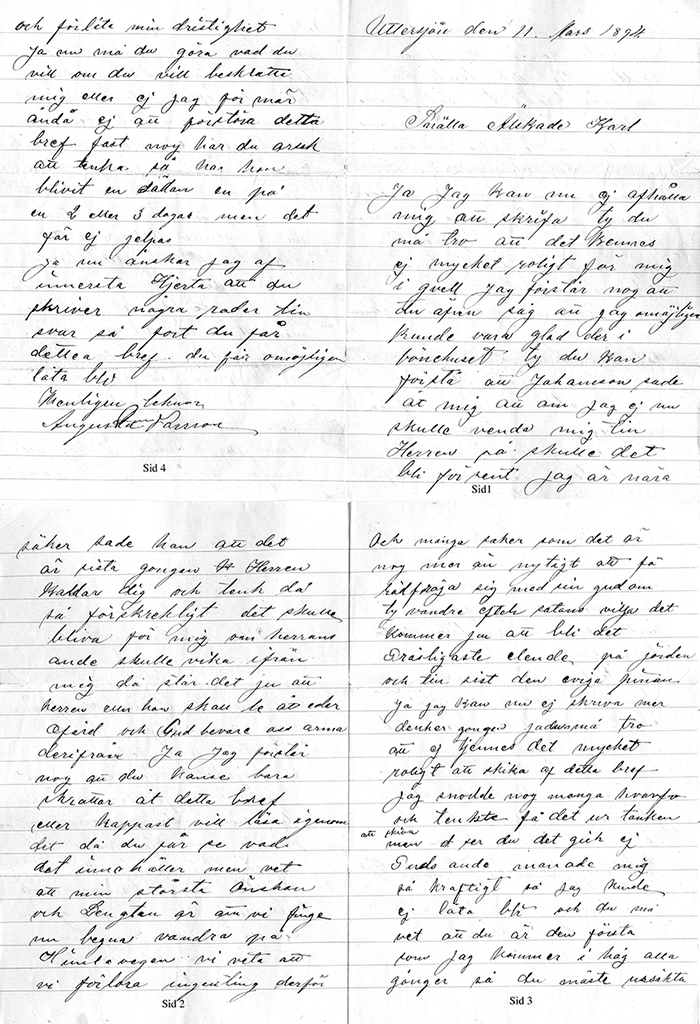 Uttersjön den 11. Mars 1894
Snälla Älskade Karl
Ja Jag kan nu ej afhålla
mig att skrifa ty du
må tro att det kennes
ej mycket roligt för mig
i qvell Jag förstår nog att
du äfvn sag att jag omöjligen
kunde vara glad der i
bönehuset ty du kan
förstå att Johansson sade
åt mig att om jag ej nu
skulle venda mig tin
Herren så skulle det
bli för sent jag är nära
Sid1
säker sade han att det
är sista gongen Herren
kallar dig och tenk då
så förskrekligt det skulle
bliva för mig om herrans
ande skulle vika ifrån
mig då står det ju att
herren han skall le åt eder
ofärd och Gud bevare oss arma
derifrån Ja Jag förstår
nog att du kanse bara
skrattar åt detta bref
eller knappast vill läsa igenom
det då du får se vad
det innehåller men vet
att min största önskan
och Lengtan är att vi finge
nu begna vandra på
Himlavegen vi veta att
vi förlora ingenting derför
Sid 2
Och många saker som det är
nog mer än nytigt att få
rådfråja sig med sin gud om
ty vandre efteh satans vilja det
kommer ju att bli det
Gräsligaste elende på jorden
och tin sist den eviga pinan
Ja jag kan nu ej skriva mer
denker gongen må tro
att ej kjennes det mycket
roligt att skika af detta bref
Jag snodde nog manga hvarfv
och tenkte få det ur tanken
att skriva
men d ser du det gick ej
Guds ande manade mig
så kraftigt så jag kunde
ej låta bli och du må
vet att du är den första
som jag kommer i håg alla
gånger så du måste ursäkta
Sid 3
och förlåta min dristighet
Ja nu må du göra vad du
vill om du vill beskratta
mig eller ej jag förmår
ändå ej att förstöra detta
bref fast nog har du orsak
att tenka så har hon
blivit en sådan en på
en 2 eller 3 dagar men det
får ej jelpas
Ja nu önskar jag af
innersta Hjerta att du
skriver några rader tin
svar så fort du får
dettea bref. du får omöjligen
låta bli
Wenligen teknar
Augusta Parsson
Sid 4